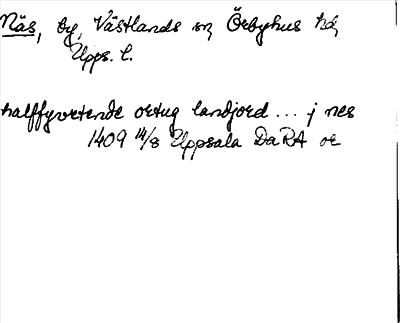 Näs, by, Västlands sn Örbyhus hd,
Upps. l.
halffyretende ortug landjord ... j nes
1409 14/8 Uppsala DaRA or